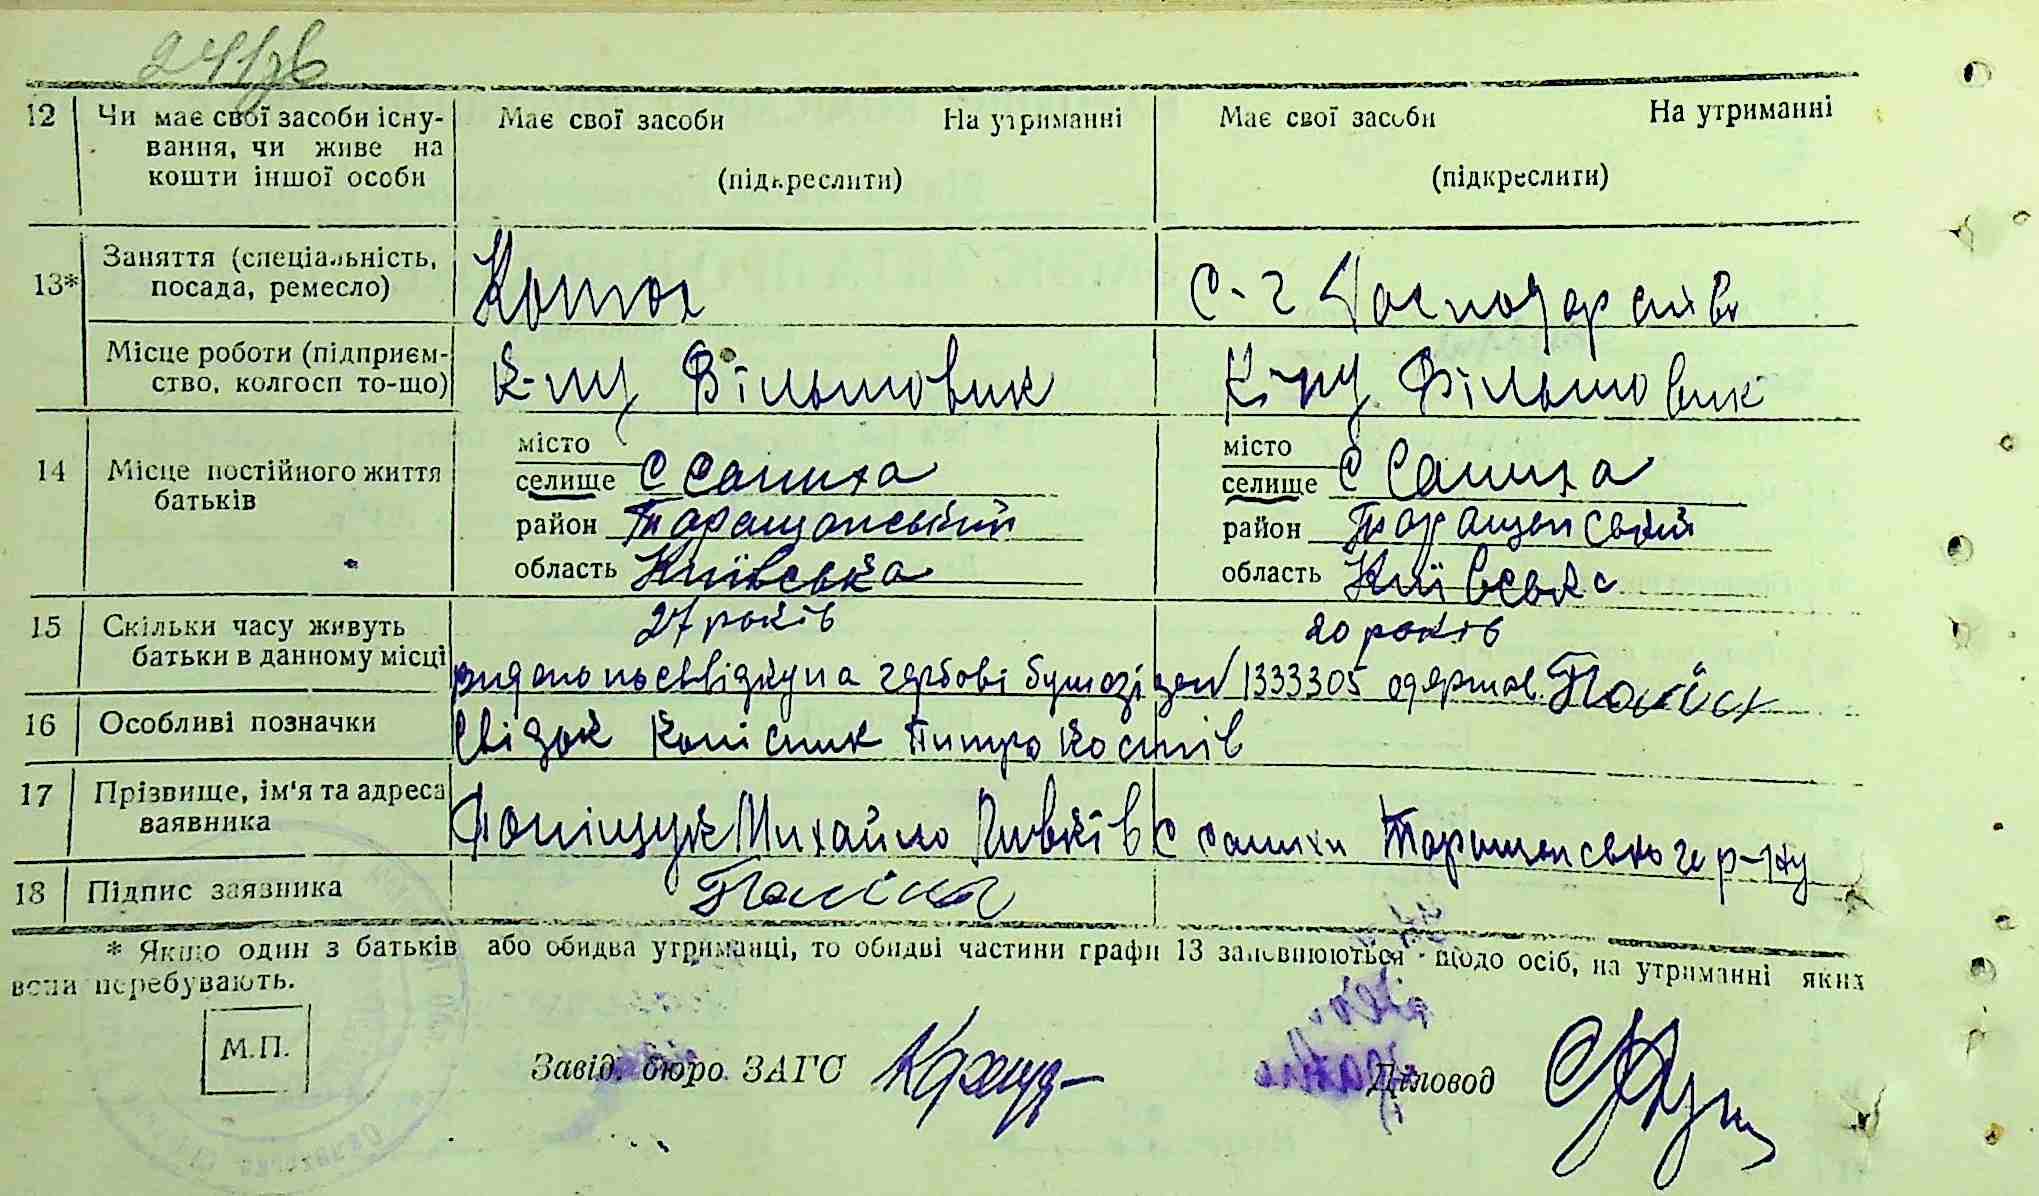 12 Чи має свої засоби існу- Має свої засоби На утриманні Має свої засоби На утриманні
вання, чи живе на
кошти іншої особи (підкреслити) (підкреслити)
13* Заняття (спеціальність,
посада, ремесло) Конюх С-г Господарство
Місце роботи (підприєм-
ство, колгосп то-що) К-пу Більшовик К-пу Більшовик
14 Місце постійного життя
батьків
місто місто
селище с Салиха селище с Салиха
район Таращанський район Таращанский
область Київська область Київська
15 Скільки часу живуть 27 років 20 років
батьки в данному місці
видано посвідку на гербові бумазі 1333305 одержав
16 Особливі позначки
Свідок Колісник Питро Костів
17 Прізвище, ім'я та адреса
заявника
Поліщук Михайло с Салихи Таращанського р-ну
18 Підпис заязника
* Якщо один з батьків або обидва утриманці, то обидві частини графи 13 заповнюються щодо осіб, на утриманні яких
вони перебувають.
М.П.
Завід. бюро ЗАГС Діловод